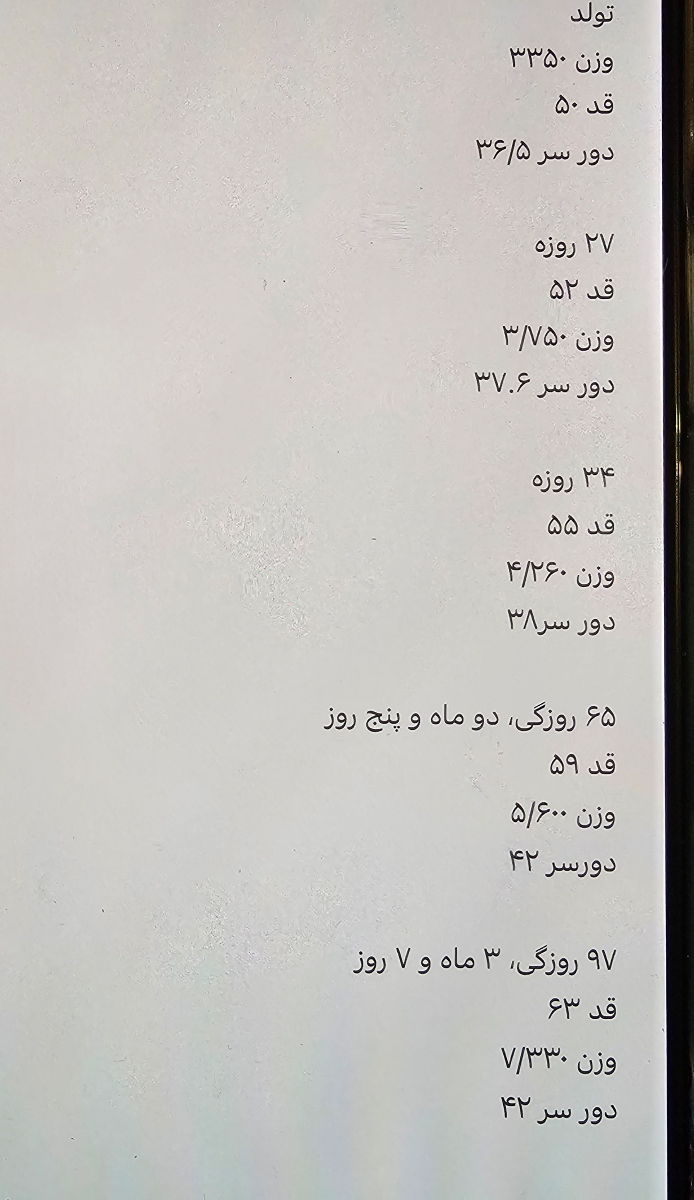 تولد
وزن ۳۳۵۰
قد ۵۰
دور سر ۳۶/۵
۲۷ روزه
قد ۵۲
وزن ۳/۷۵۰
دور سر ۳۷.۶
۳۴ روزه
قد ۵۵
وزن ۴/۲۶۰
دور سر۳۸
۶۵ روزگی، دو ماه و پنج روز
قد ۵۹
وزن ۵/۶۰۰
دورسر ۴۲
۹۷ روزگی، ۳ ماه و ۷ روز
قد ۶۳
وزن ۷/۳۳۰
دور سر ۴۲